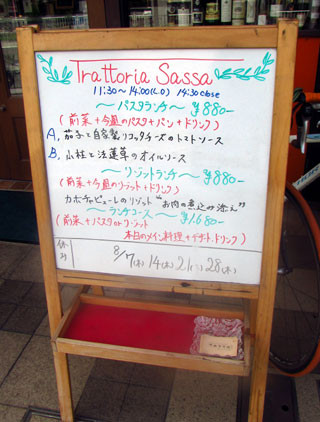 Trattoria Sassa
11:30～14:00(L.O) 14:30close
～パスタランチ～ ¥880-
(前菜+今週のパスタ+パン+ドリンク)
A, 茄子と自家製リコッタチーズのトマトソース
B, 小柱と法蓮草のオイルソース
～リゾットランチ～ ¥880-
(前菜+今週のリゾット+ドリンク)
カボチャピューレのリゾット "お肉の煮込み添え"
～ランチコース～ ¥1,680-
(前菜+パスタorリゾット
本日のメイン料理+デザート,ドリンク)
休み 8/7(木) 14(木) 21(木) 28(木)